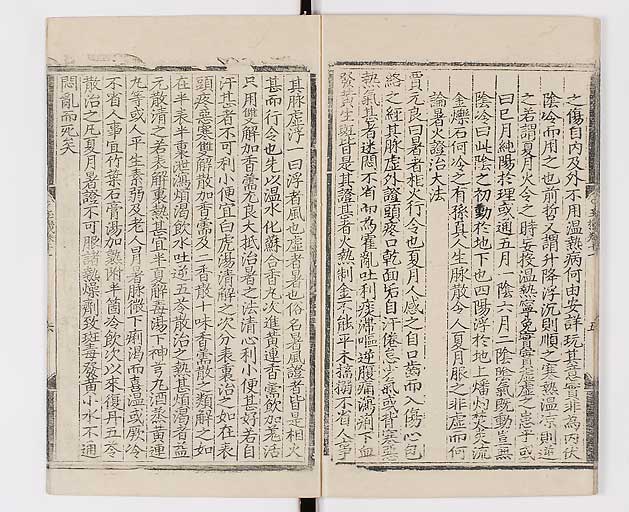 之傷自内及外不用温熱病何由安詳玩其意實非為内伏
陰冷而用之也前哲又謂升降浮沉則順之寒熱温凉則逆
之若謂夏月火令之時妄投温熱寧免實實虚虚之患乎或
曰巳月純陽於理或通五月一陰六月二陰陰氣既動豈無
陰冷曰此陰之初動於地下也四陽浮於地上燔灼焚炎流
金爍石何冷之有孫真人生脉散令人夏月服之非虚而何
論暑火證治大法
賈元良曰暑者相火行令也夏月人感之自口齒而入傷心包
絡之經其脉虚外證頭疼口乾面垢自汗倦怠少氣或背寒惡
熱氣甚者迷悶不省而為霍亂吐利痰滯嘔逆腹痛瀉痢下血
發黄生斑皆是其證甚者火熱制金不能平木搐搦不省人事
其脉虚浮一曰浮者風也虚者暑也俗名暑風證者皆是相火
甚而行令也先以温水化蘇合香丸次進黄連香薷飲加羌活
只用雙解加香薷尤良大抵治暑之法清心利小便甚好若自
汗甚者不可利小便宜白虎湯清解之次分表裏治之如在表
頭疼惡寒雙解散加香薷及二香散十味香薷散之類解之如
在半表半裏泄瀉煩渴飲水吐逆五苓散治之熱甚煩渴者益
元散清之若表解裏熱甚宜半夏解毒湯下神芎丸酒蒸黄連
丸等或人平生素弱及老人冐暑脉微下痢渴而喜温或厥冷
不省人事宜竹葉石膏湯加熟附半箇冷飲次以來復丹五苓
散治之凡夏月暑證不可服諸熱燥劑致斑毒發黄小水不通
悶亂而死矣